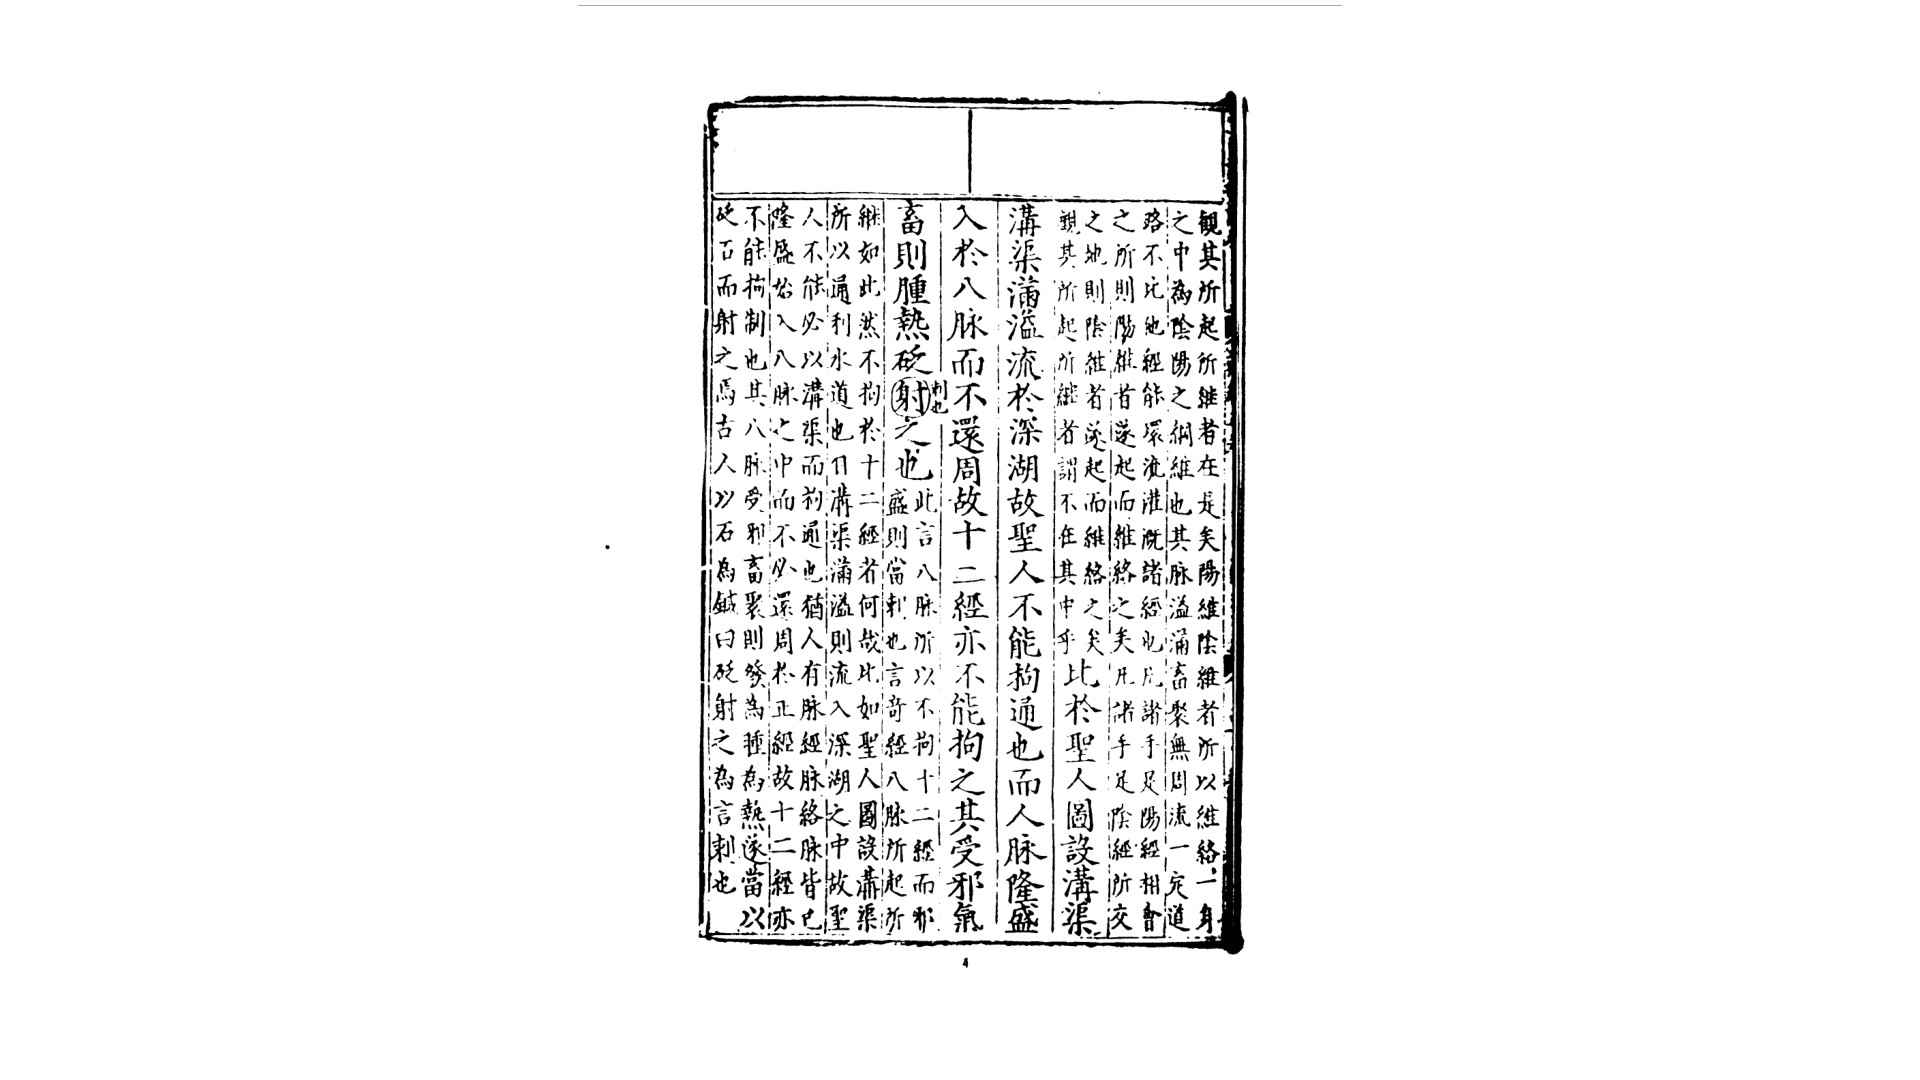 觀其所起所維者在是矣陽維陰維者所以維絡一身
之中為陰陽之綱維也其脉溢滿畜聚無周流一定道
路不比他經能環流灌溉諸經也凡諸手足陽經相會
之所則陽維者遂起而維絡之矣凡諸手足陰經所交
之地則陰維者遂起而維絡之矣
觀其所起所繼者謂不在其中乎
比於聖人圖設溝渠
溝渠滿溢流於深湖故聖人不能拘通也而人脉隆盛
入於八脉而不還周故十二經亦不能拘之其受邪氣
畜則腫熱砭射刺也之也
此言八脉所以不拘十二經而邪
盛則當刺也言奇經八脉所起所
繼如此然不拘於十二經者何哉比如聖人圖設溝渠
所以通利水道也但溝渠滿溢則流入深湖之中故聖
人不能必以溝渠而拘通也猶人有脉經脉絡脉皆已
隆盛始入八脉之中而不必還周於正經故十二經亦
不能拘制也其八脉受邪畜聚則發為腫為熱遂當以
砭石而射之焉古人以石為鍼曰砭射之為言刺也
4